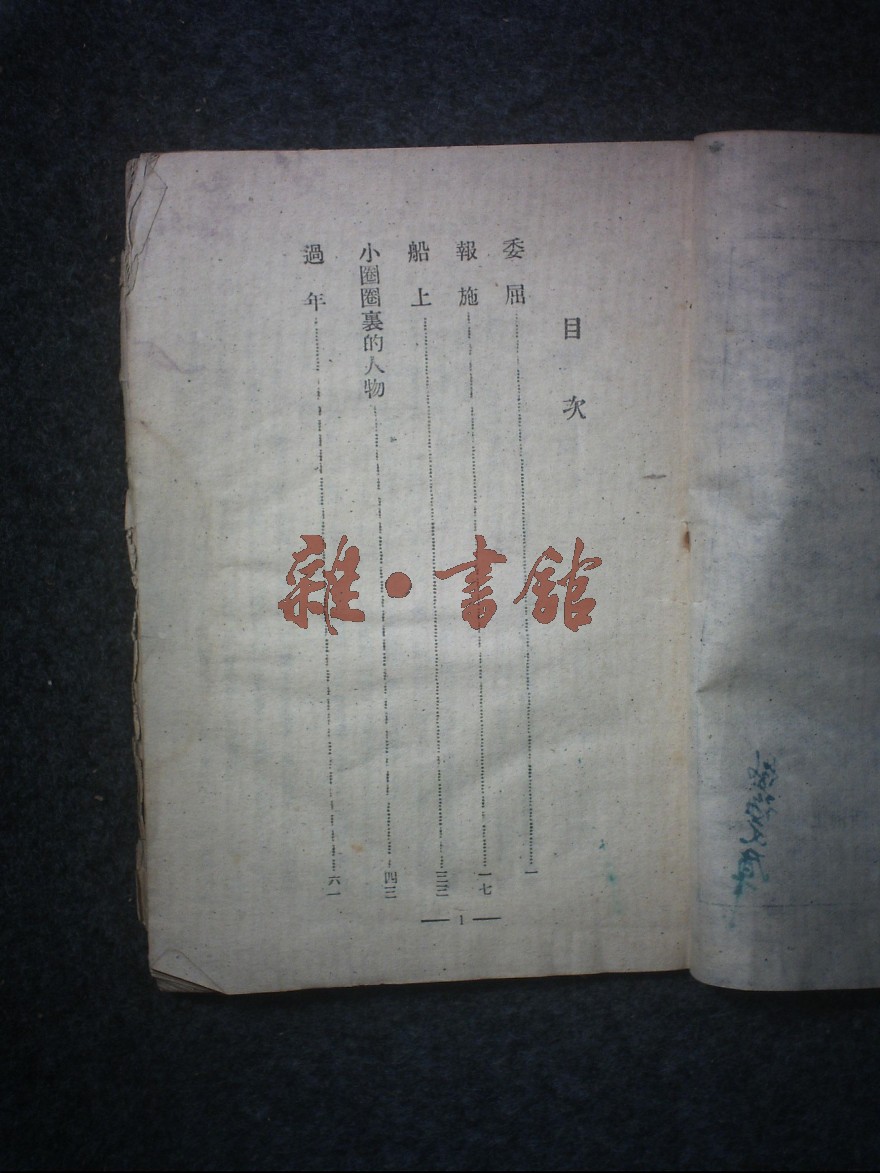 目次
委屈…………一
報施…………一七
船上…………三三
小圈圈裏的人物…………四三
過年…………六一
— 1 —
雜·書館